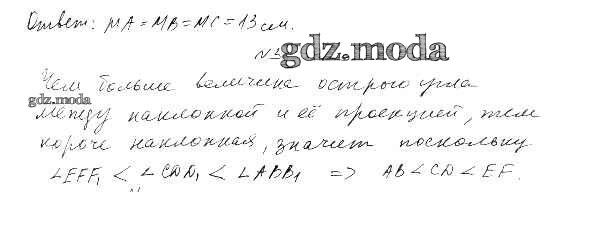 Ответ: MA = MB = MC = 13 см.
gdz.moda
Чем больше величина острого угла
gdz.moda
между наклонной и её проекцией, тем
короче наклонная, значит поскольку
∠EFF₁ < ∠CDD₁ < ∠ABB₁ => AB < CD < EF.